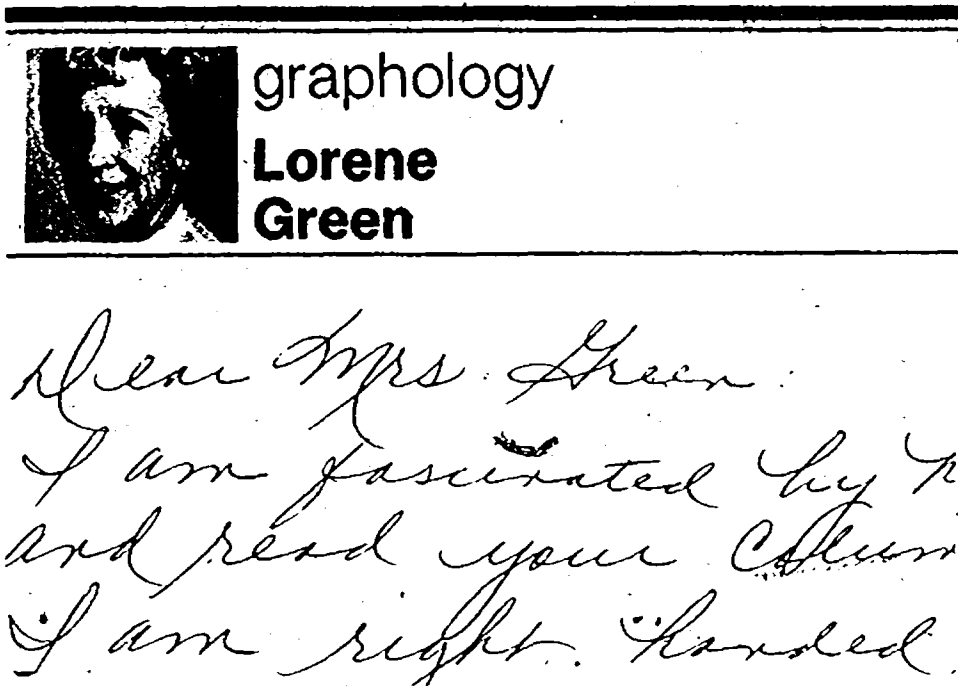 graphology
Lorene
Green
Dear Mrs. Green:
I am fascinated by
and read your
I am right handed.